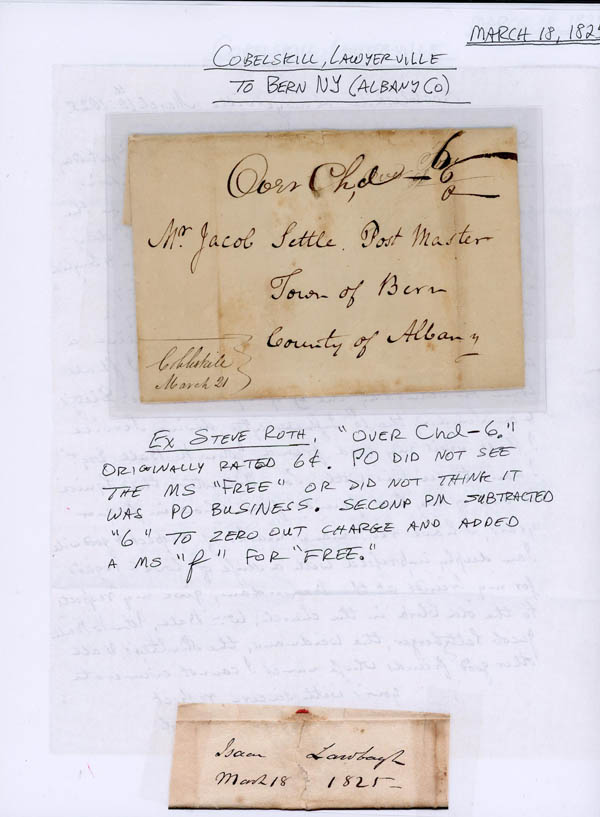 MARCH 18, 1825
COBELSKILL, LAWYERVILLE
TO BERN NY (ALBANY CO)
Over Chd - 6
6
0
Mr Jacob Settle Post Master
Town of Bern
County of Albany
Cobleskill
March 21
EX STEVE ROTH. "OVER Chd-6."
ORIGINALLY RATED 6¢. PO DID NOT SEE
THE MS "FREE" OR DID NOT THINK IT
WAS PO BUSINESS. SECOND PM SUBTRACTED
"6" TO ZERO OUT CHARGE AND ADDED
A MS "f" FOR "FREE."
Isaac
March 18 1825